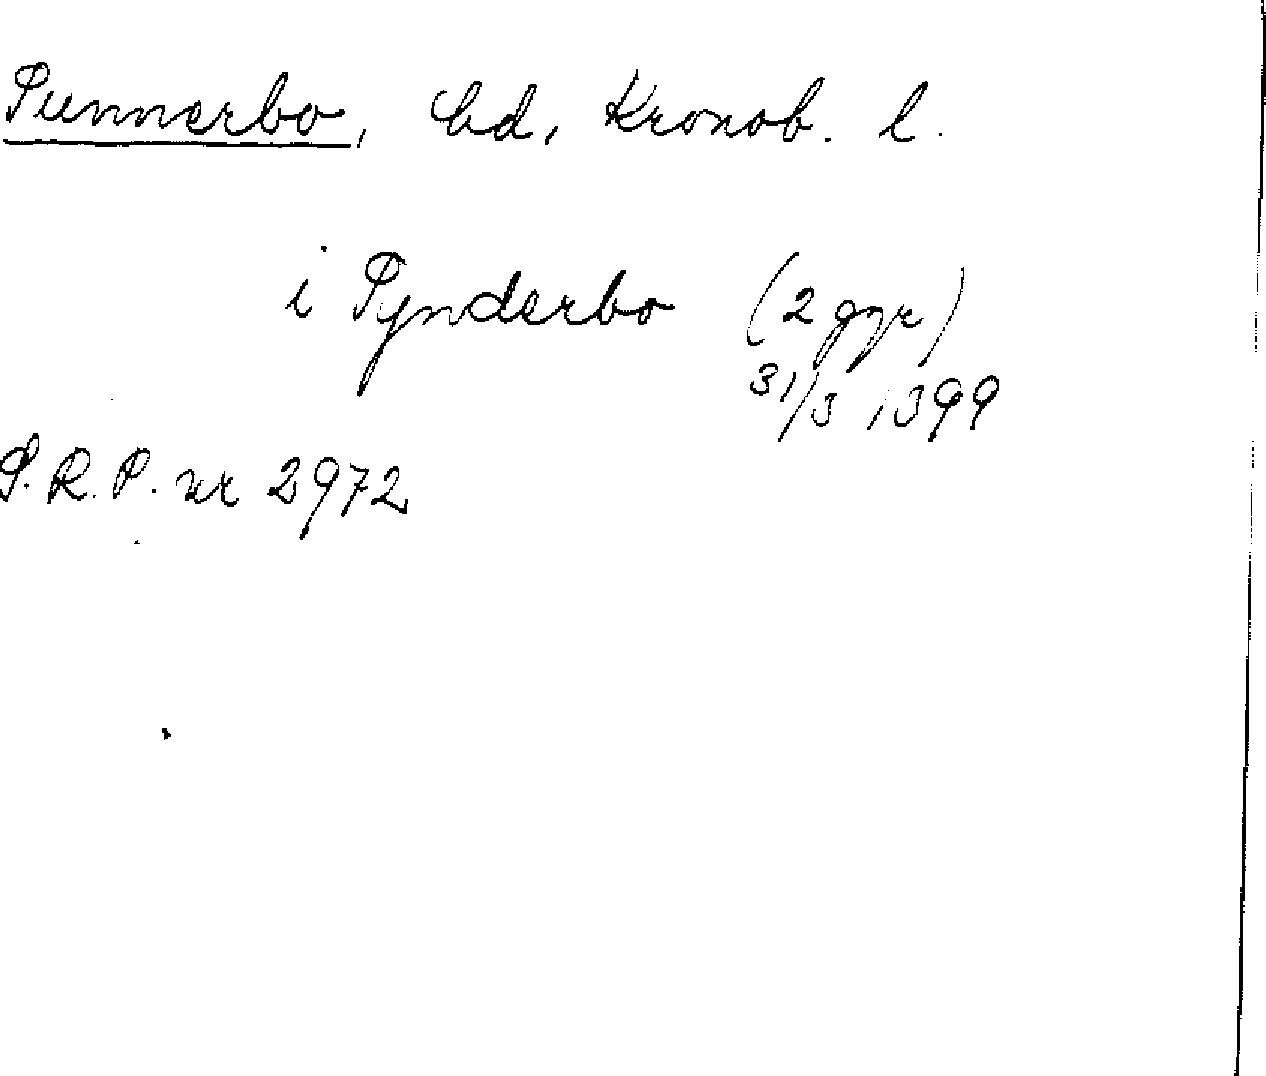 Sunnerbo, hd, Kronob. l.
i Synderbo (2 ggr)
31/3 1399
S.R.P. nr 2972